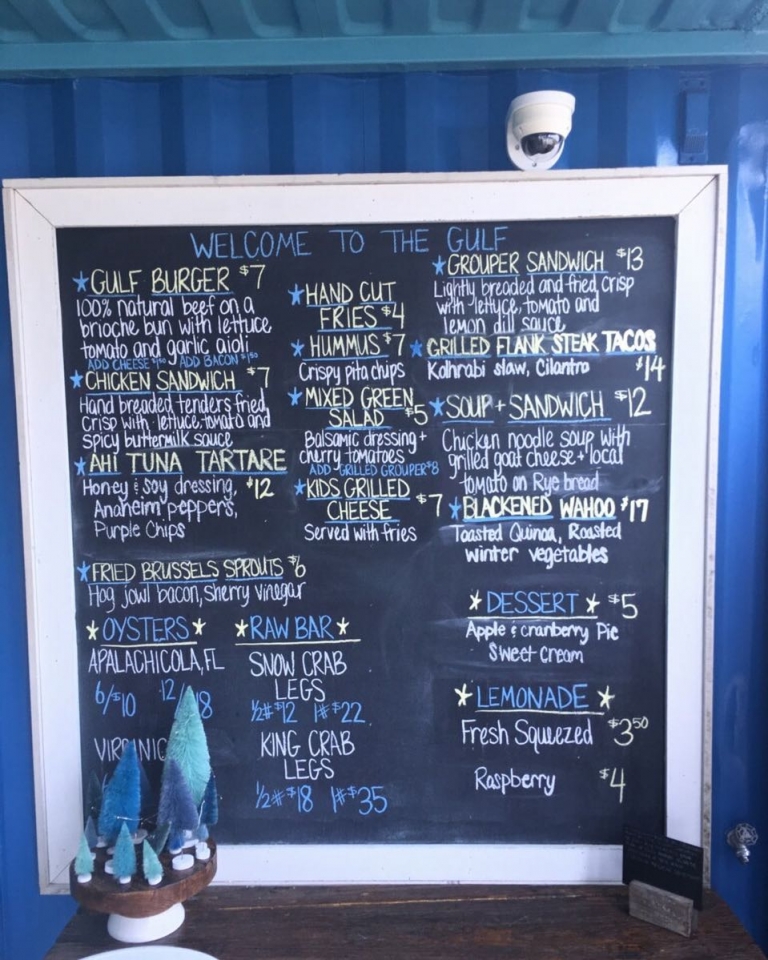 WELCOME TO THE GULF
★GULF BURGER $7
100% natural beef on a
brioche bun with lettuce
tomato and garlic aioli
ADD CHEESE $1.00 ADD BACON $1.50
★CHICKEN SANDWICH $7
Hand breaded tenders fried
crisp with lettuce, tomato and
spicy buttermilk sauce
★AHI TUNA TARTARE
Honey & soy dressing, $12
Anaheim peppers,
Purple Chips
★FRIED BRUSSELS SPROUTS $6
Hog jowl bacon, sherry vinegar
★OYSTERS★
APALACHICOLA, FL
6/$10 12/18
★RAW BAR★
SNOW CRAB
LEGS
½# $12 1# $22
KING CRAB
LEGS
½# $18 1# $35
★HAND CUT
FRIES $4
★HUMMUS $7
Crispy pita chips
★MIXED GREEN
SALAD $5
Balsamic dressing +
cherry tomatoes
ADD GRILLED GROUPER $8
★KIDS GRILLED
CHEESE $7
Served with fries
★GROUPER SANDWICH $13
Lightly breaded and fried, crisp
with lettuce, tomato and
lemon dill sauce
★GRILLED FLANK STEAK TACOS
Kolhrabi slaw, Cilantro $14
★SOUP + SANDWICH $12
Chicken noodle soup with
grilled goat cheese + local
tomato on Rye bread
★BLACKENED WAHOO $17
Toasted Quinoa, Roasted
winter vegetables
★DESSERT★ $5
Apple & cranberry Pie
Sweet Cream
★LEMONADE★
Fresh Squeezed $3.50
Raspberry $4